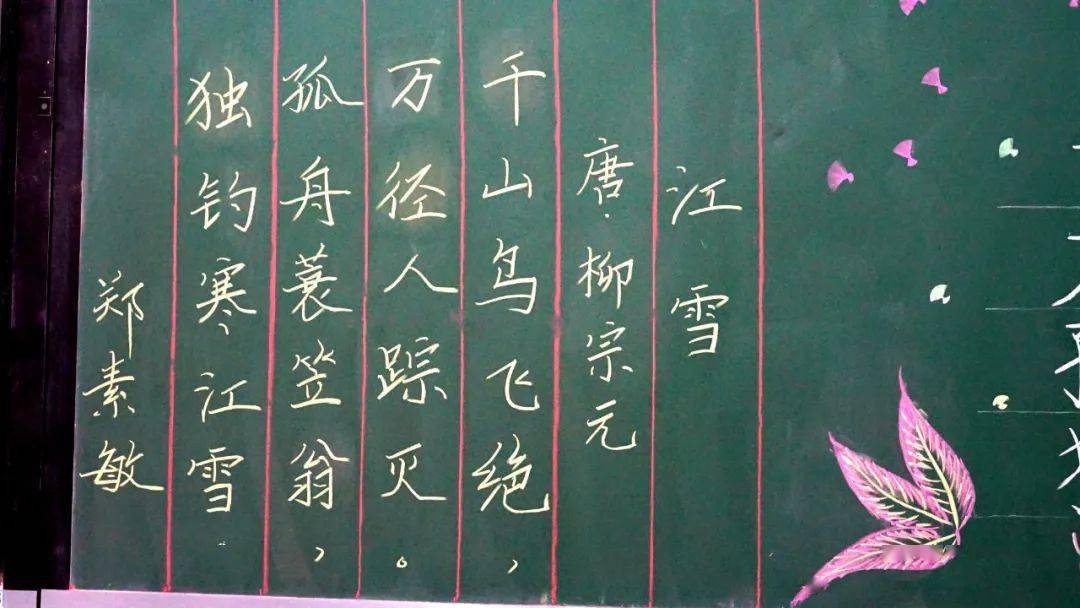 江雪
唐·柳宗元
千山鸟飞绝，
万径人踪灭。
孤舟蓑笠翁，
独钓寒江雪.
郑素敏